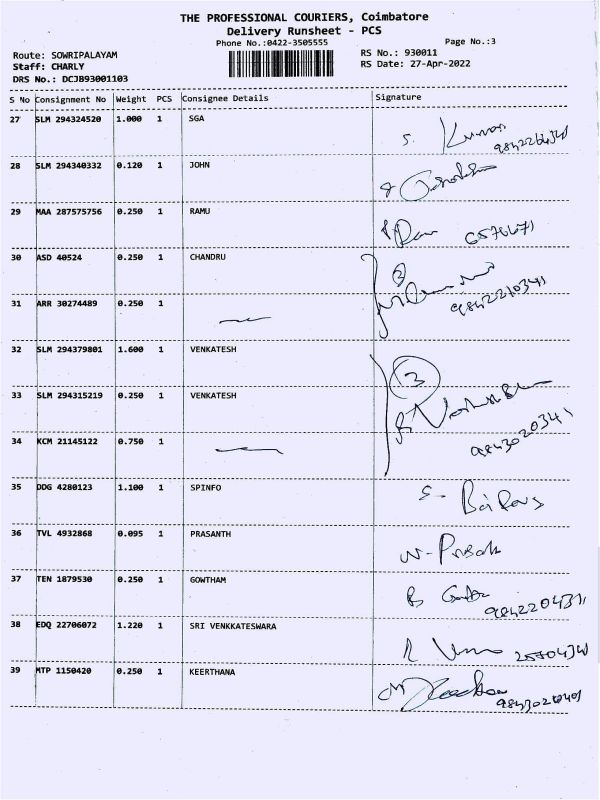 THE PROFESSIONAL COURIERS, Coimbatore
Delivery Runsheet - PCS
Phone No.:0422-3505555 Page No.:3
Route: SOWRIPALAYAM RS No.: 930011
Staff: CHARLY RS Date: 27-Apr-2022
DRS No.: DCJB93001103
S No Consignment No Weight PCS Consignee Details Signature
27 SLM 294324520 1.000 1 SGA S. Kumar
28 SLM 294340332 0.120 1 JOHN
29 MAA 287575756 0.250 1 RAMU
30 ASD 40524 0.250 1 CHANDRU 2
31 ARR 30274489 0.250 1
32 SLM 294379801 1.600 1 VENKATESH 3
33 SLM 294315219 0.250 1 VENKATESH
34 KCM 21145122 0.750 1 9843020341
35 DDG 4280123 1.100 1 SPINFO
36 TVL 4932868 0.095 1 PRASANTH
37 TEN 1879530 0.250 1 GOWTHAM
38 EDQ 22706072 1.220 1 SRI VENKKATESWARA
39 MTP 1150420 0.250 1 KEERTHANA